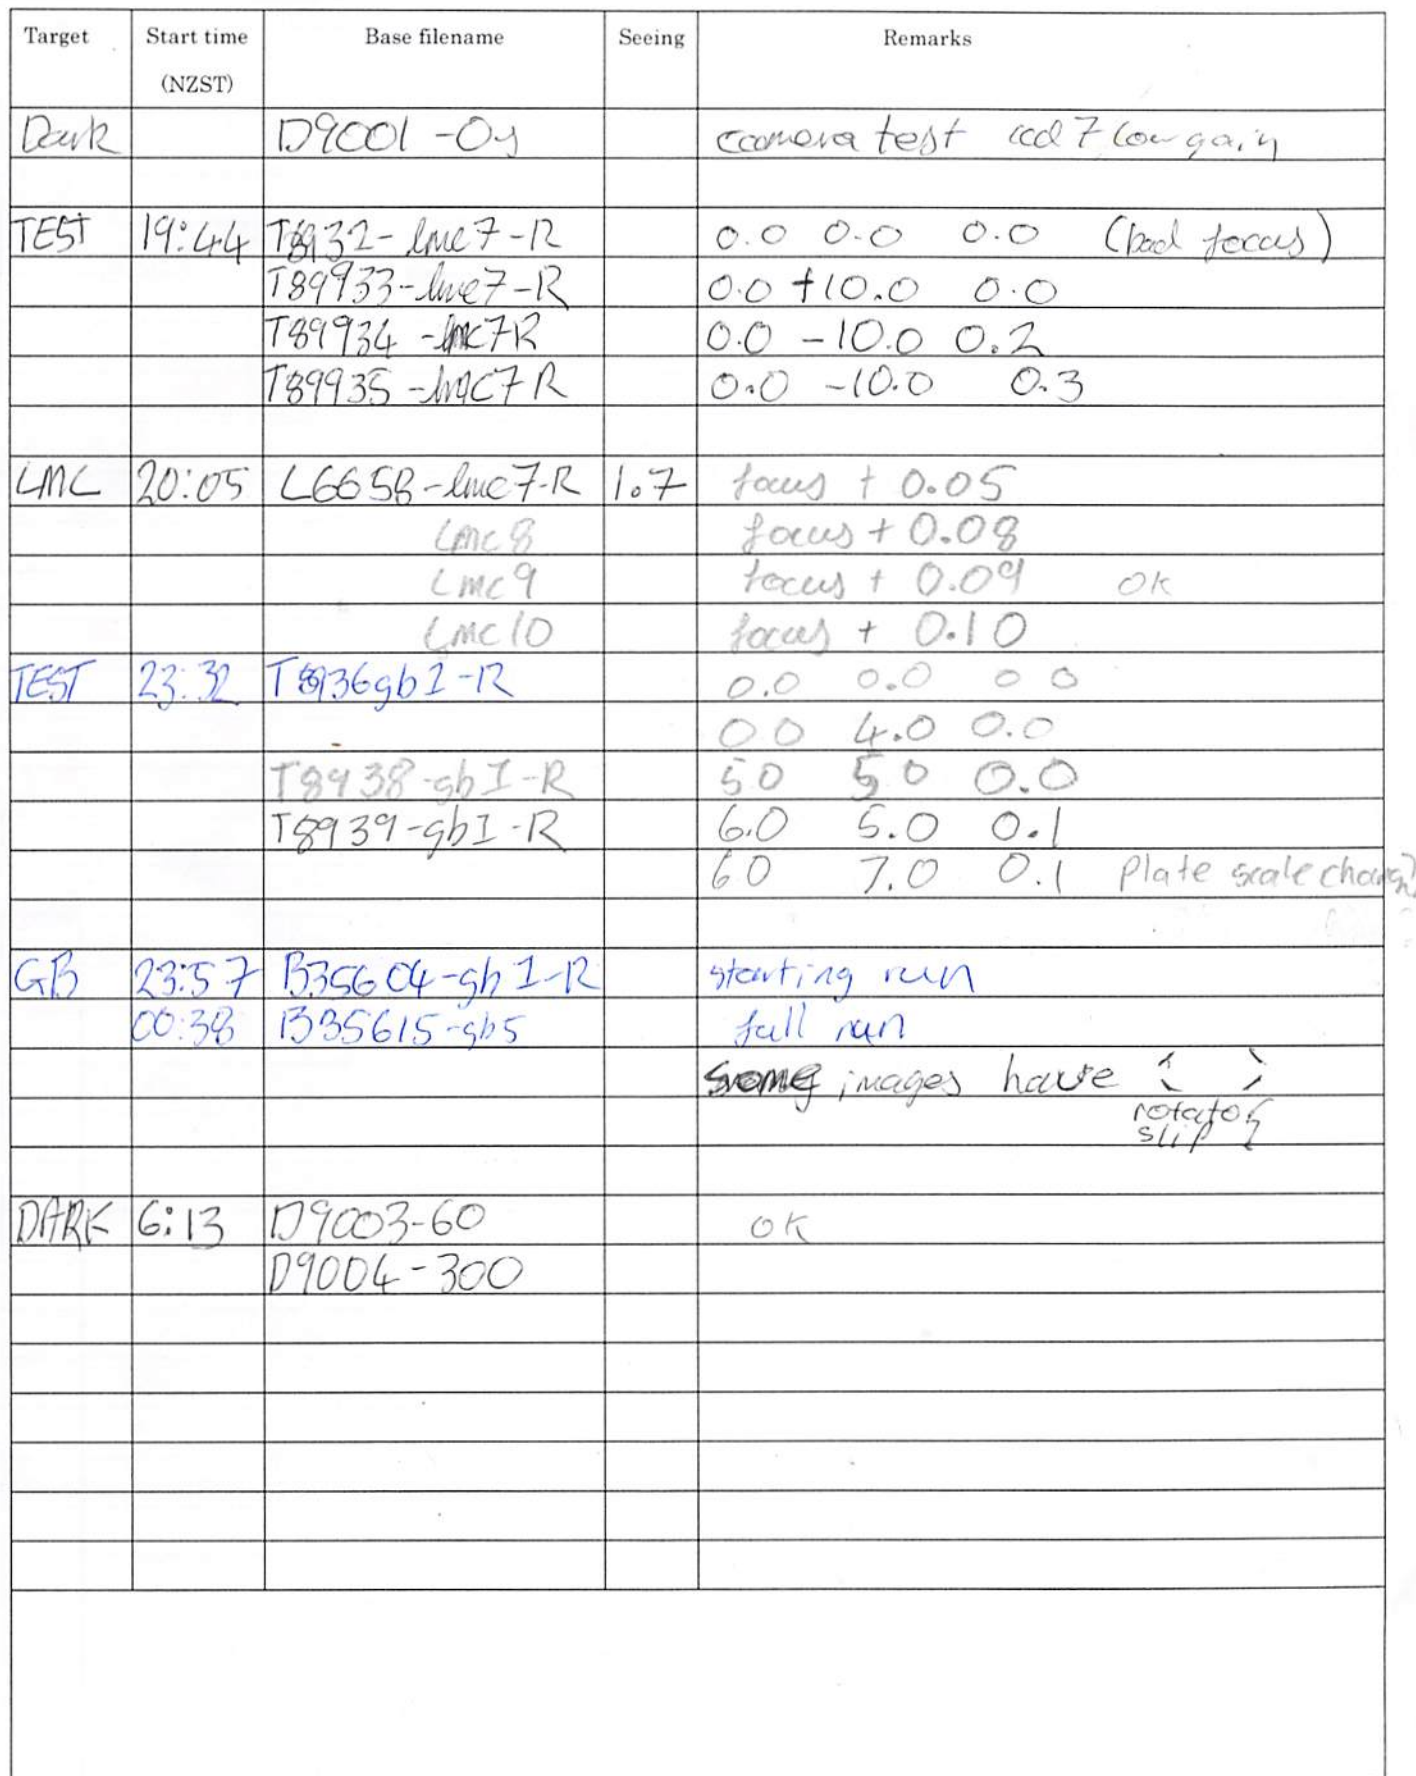 Target Start time Base filename Seeing Remarks
(NZST)
Dark D9001 - 0s camera test ccd 7 low gain
TEST 19:44 T8932 - lmc7 - R 0.0 0.0 0.0 (bad focus)
T89933 - lmc7 - R 0.0 +10.0 0.0
T89934 - lmc7R 0.0 -10.0 0.2
T89935 - lmc7R 0.0 -10.0 0.3
LMC 20:05 L6658 - lmc7-R 1.7 focus + 0.05
Lmc 8 focus + 0.08
Lmc 9 focus + 0.09 ok
Lmc 10 focus + 0.10
TEST 23:32 T8936gb1-R 0.0 0.0 0 0
0 0 4.0 0.0
T8938-gb1-R 5 0 5 0 0.0
T8939-gb1-R 6.0 5.0 0.1
6 0 7.0 0.1 Plate scale change?
GB 23:57 B35604-gb1-R starting run
00:38 B35615-gb5 full run
some images have
rotator
slip
DARK 6:13 D9003-60 ok
D9004-300